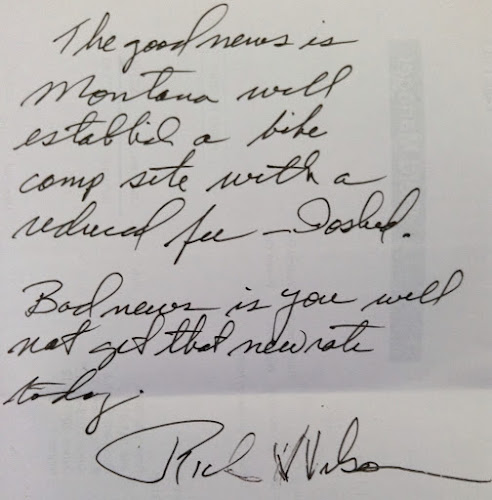 The good news is
Montana will
establish a bike
camp site with a
reduced fee – I asked.
Bad news is you will
not get that new rate
today.
Rich Wilson